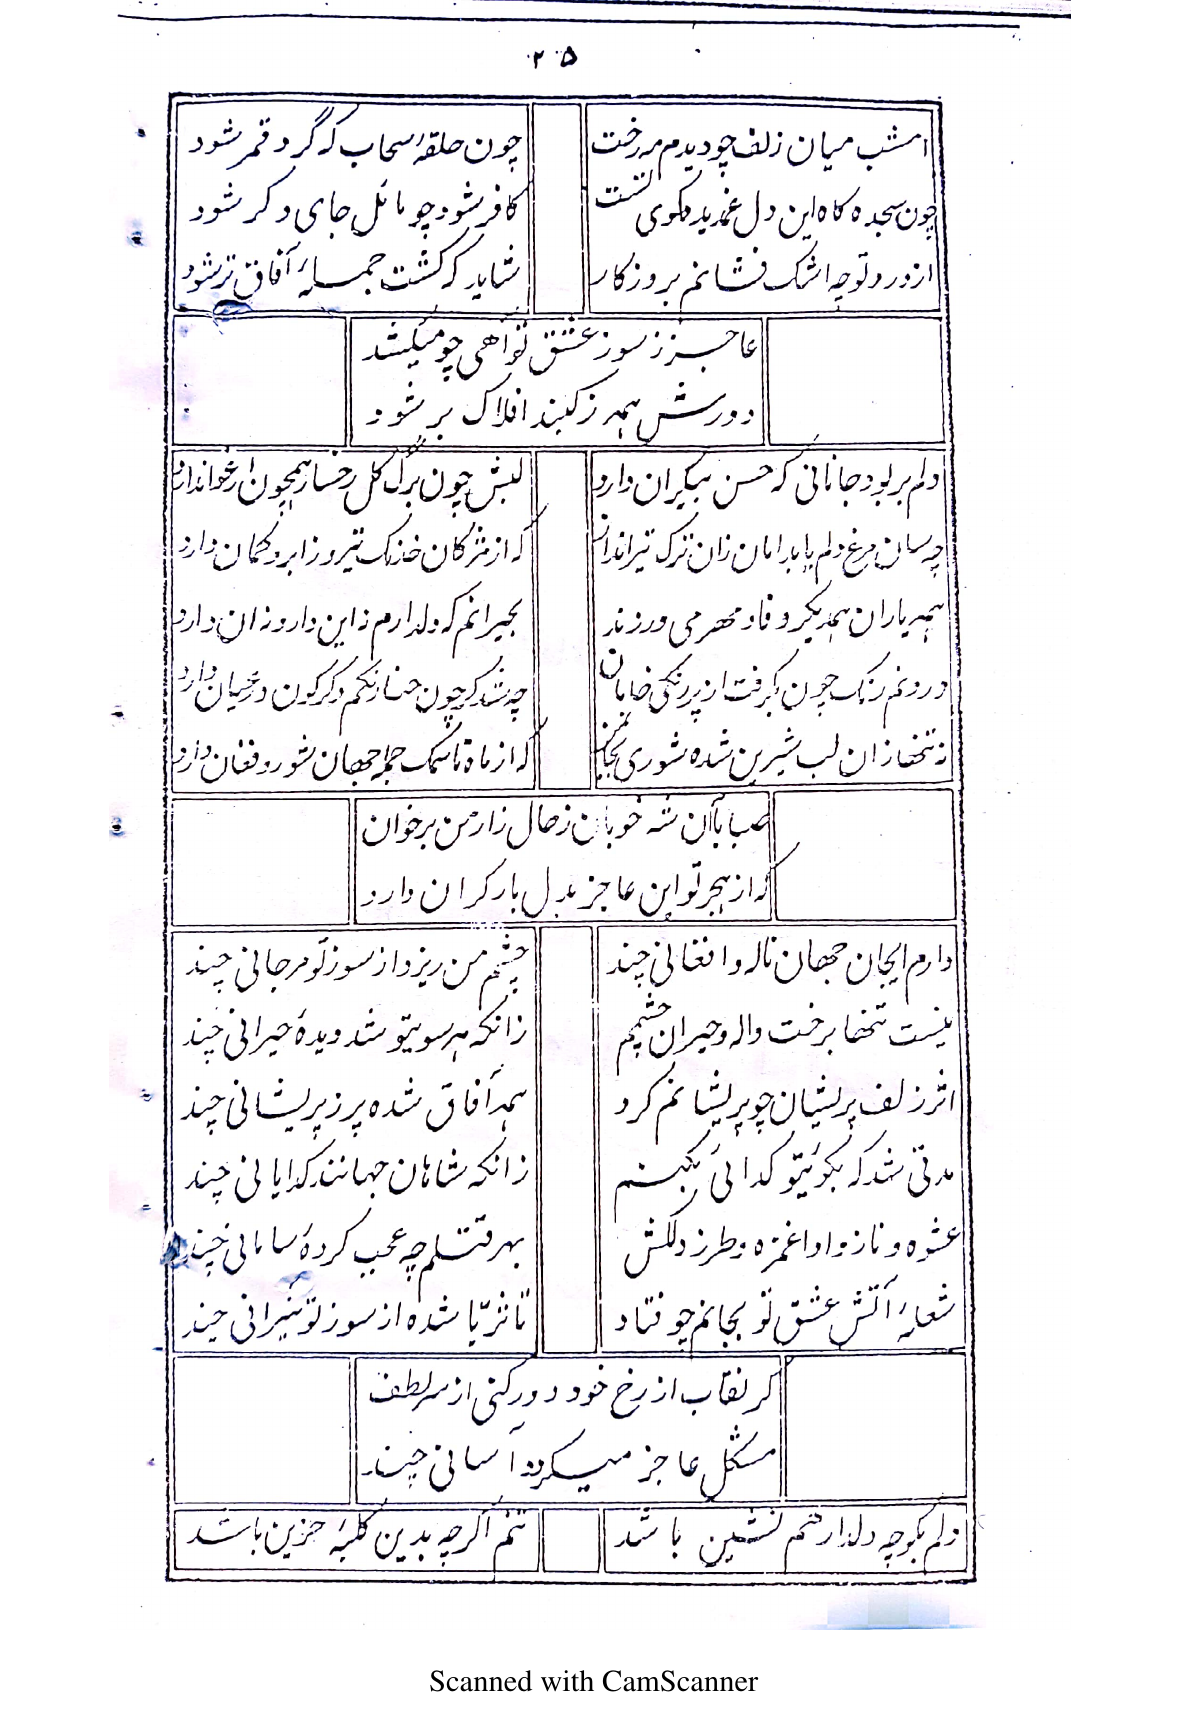 ۲۵
امشب میان زلف چو دیدم مه رخت
چون حلقهٔ سحاب که گرد قمر شود
چون سجده کاه این دل غمدیده کوی تست
کافر شود چو مائل جای دکر شود
از درد تو چه اشک فشانم بروزکار
شاید که کشت جملهٔ آفاق تر شود
عاجز ز سوز عشق تو آهی چو میکشد
دورش همه ز کنبد افلاک بر شود
دلم بربود جانانی که حسن بیکران دارد
لبش چون برک کل رخسار همچون ارغوان دارد
چه سان مرغ دلم یابد امان زان ترک تیرانداز
که از مژکان خدنک تیر و ز ابرو کمان دارد
همه یاران بهمدیکر وفا و مهر می ورزند
بحیرانم که دلدارم نه این دارد نه آن دارد
درونم رنک خون بکرفت از پر رنکی خاپان
چه شد کر چون حنا رنکم دکرکون در عیان دارد
نه تنها زان لب شیرین شده شوری بجان من
که از ماه تا سمک جمله جهان شور و فغان دارد
صبا با آن شه خوبان ز حال زار من برخوان
که از هجر تو این عاجز بدل بار کران دارد
دارم ایجان جهان ناله و افغانی چند
چشم من ریزد از سوز تو مرجانی چند
نیست تنها برخت واله و حیران چشمم
زانکه هر سو بتو شد دیدهٔ حیرانی چند
اثر زلف پریشان چو پریشانم کرد
همه آفاق شده پر ز پریشانی چند
مدتی شد که بکوئیتو کدائی بکنم
زانکه شاهان جهانند کدایانی چند
عشوه و ناز و ادا غمزه و طرز دلکش
بهر قتلم چه عجب کردهٔ سامانی چند
شعلهٔ آتش عشق تو بجانم چو فتاد
تا ثریا شده از سوز تو نیرانی چند
کر نقاب از رخ خود دور کنی از سر لطف
مشکل عاجز میکردد آسانی چند
دلم بکوچه دلدار هم نشین باشد
تنم اکرچه بدین کلبهٔ حزین باشد
Scanned with CamScanner